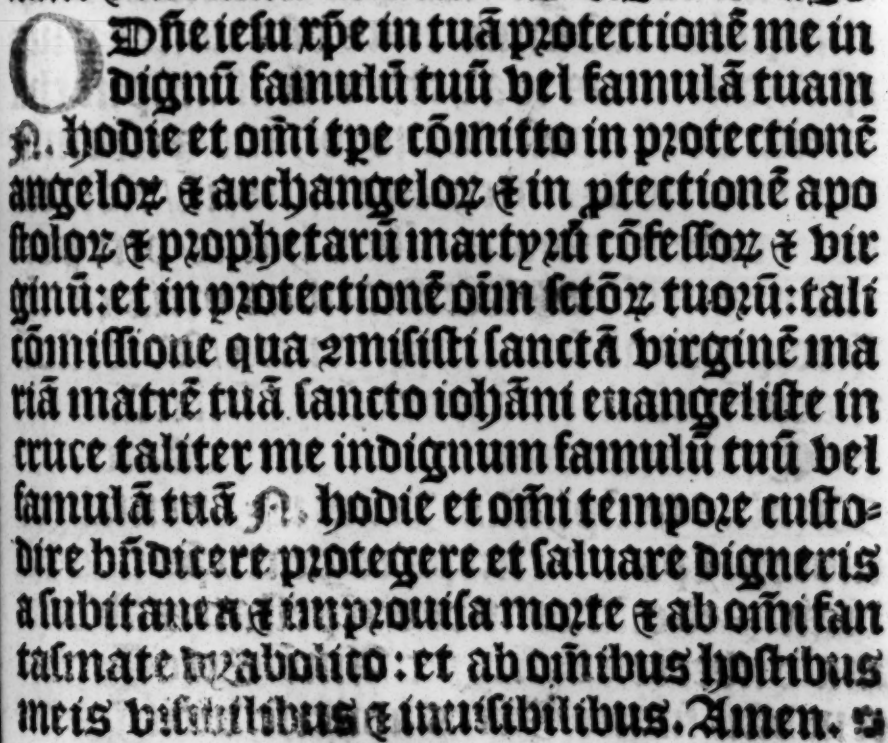 O Dñe iesu xp̄e in tuā protectionē me in
dignū famulū tuū vel famulā tuam
N. hodie et om̄i tp̄e cōmitto in protectionē
angeloꝝ ⁊ archangeloꝝ ⁊ in ꝓtectionē apo
stoloꝝ ⁊ prophetarū martyrū cōfessoꝝ ⁊ vir
ginū: et in protectionē oīm sctōꝝ tuorū: tali
cōmissione qua ꝯmisisti sanctā virginē ma
riā matrē tuā sancto iohāni euangeliste in
cruce taliter me indignum famulū tuū vel
famulā tuā N. hodie et om̄i tempore custo⸗
dire bn̄dicere protegere et saluare digneris
a subitanea ⁊ improuisa morte ⁊ ab om̄i fan
tasmate dyabolico: et ab om̄ibus hostibus
meis visibilibus ⁊ inuisibilibus. Amen.